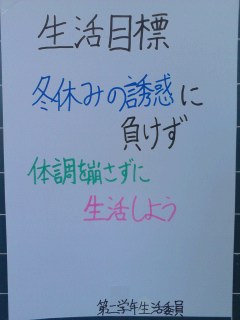 生活目標
冬休みの誘惑に
負けず
体調を崩さずに
生活しよう
第二学年生活委員